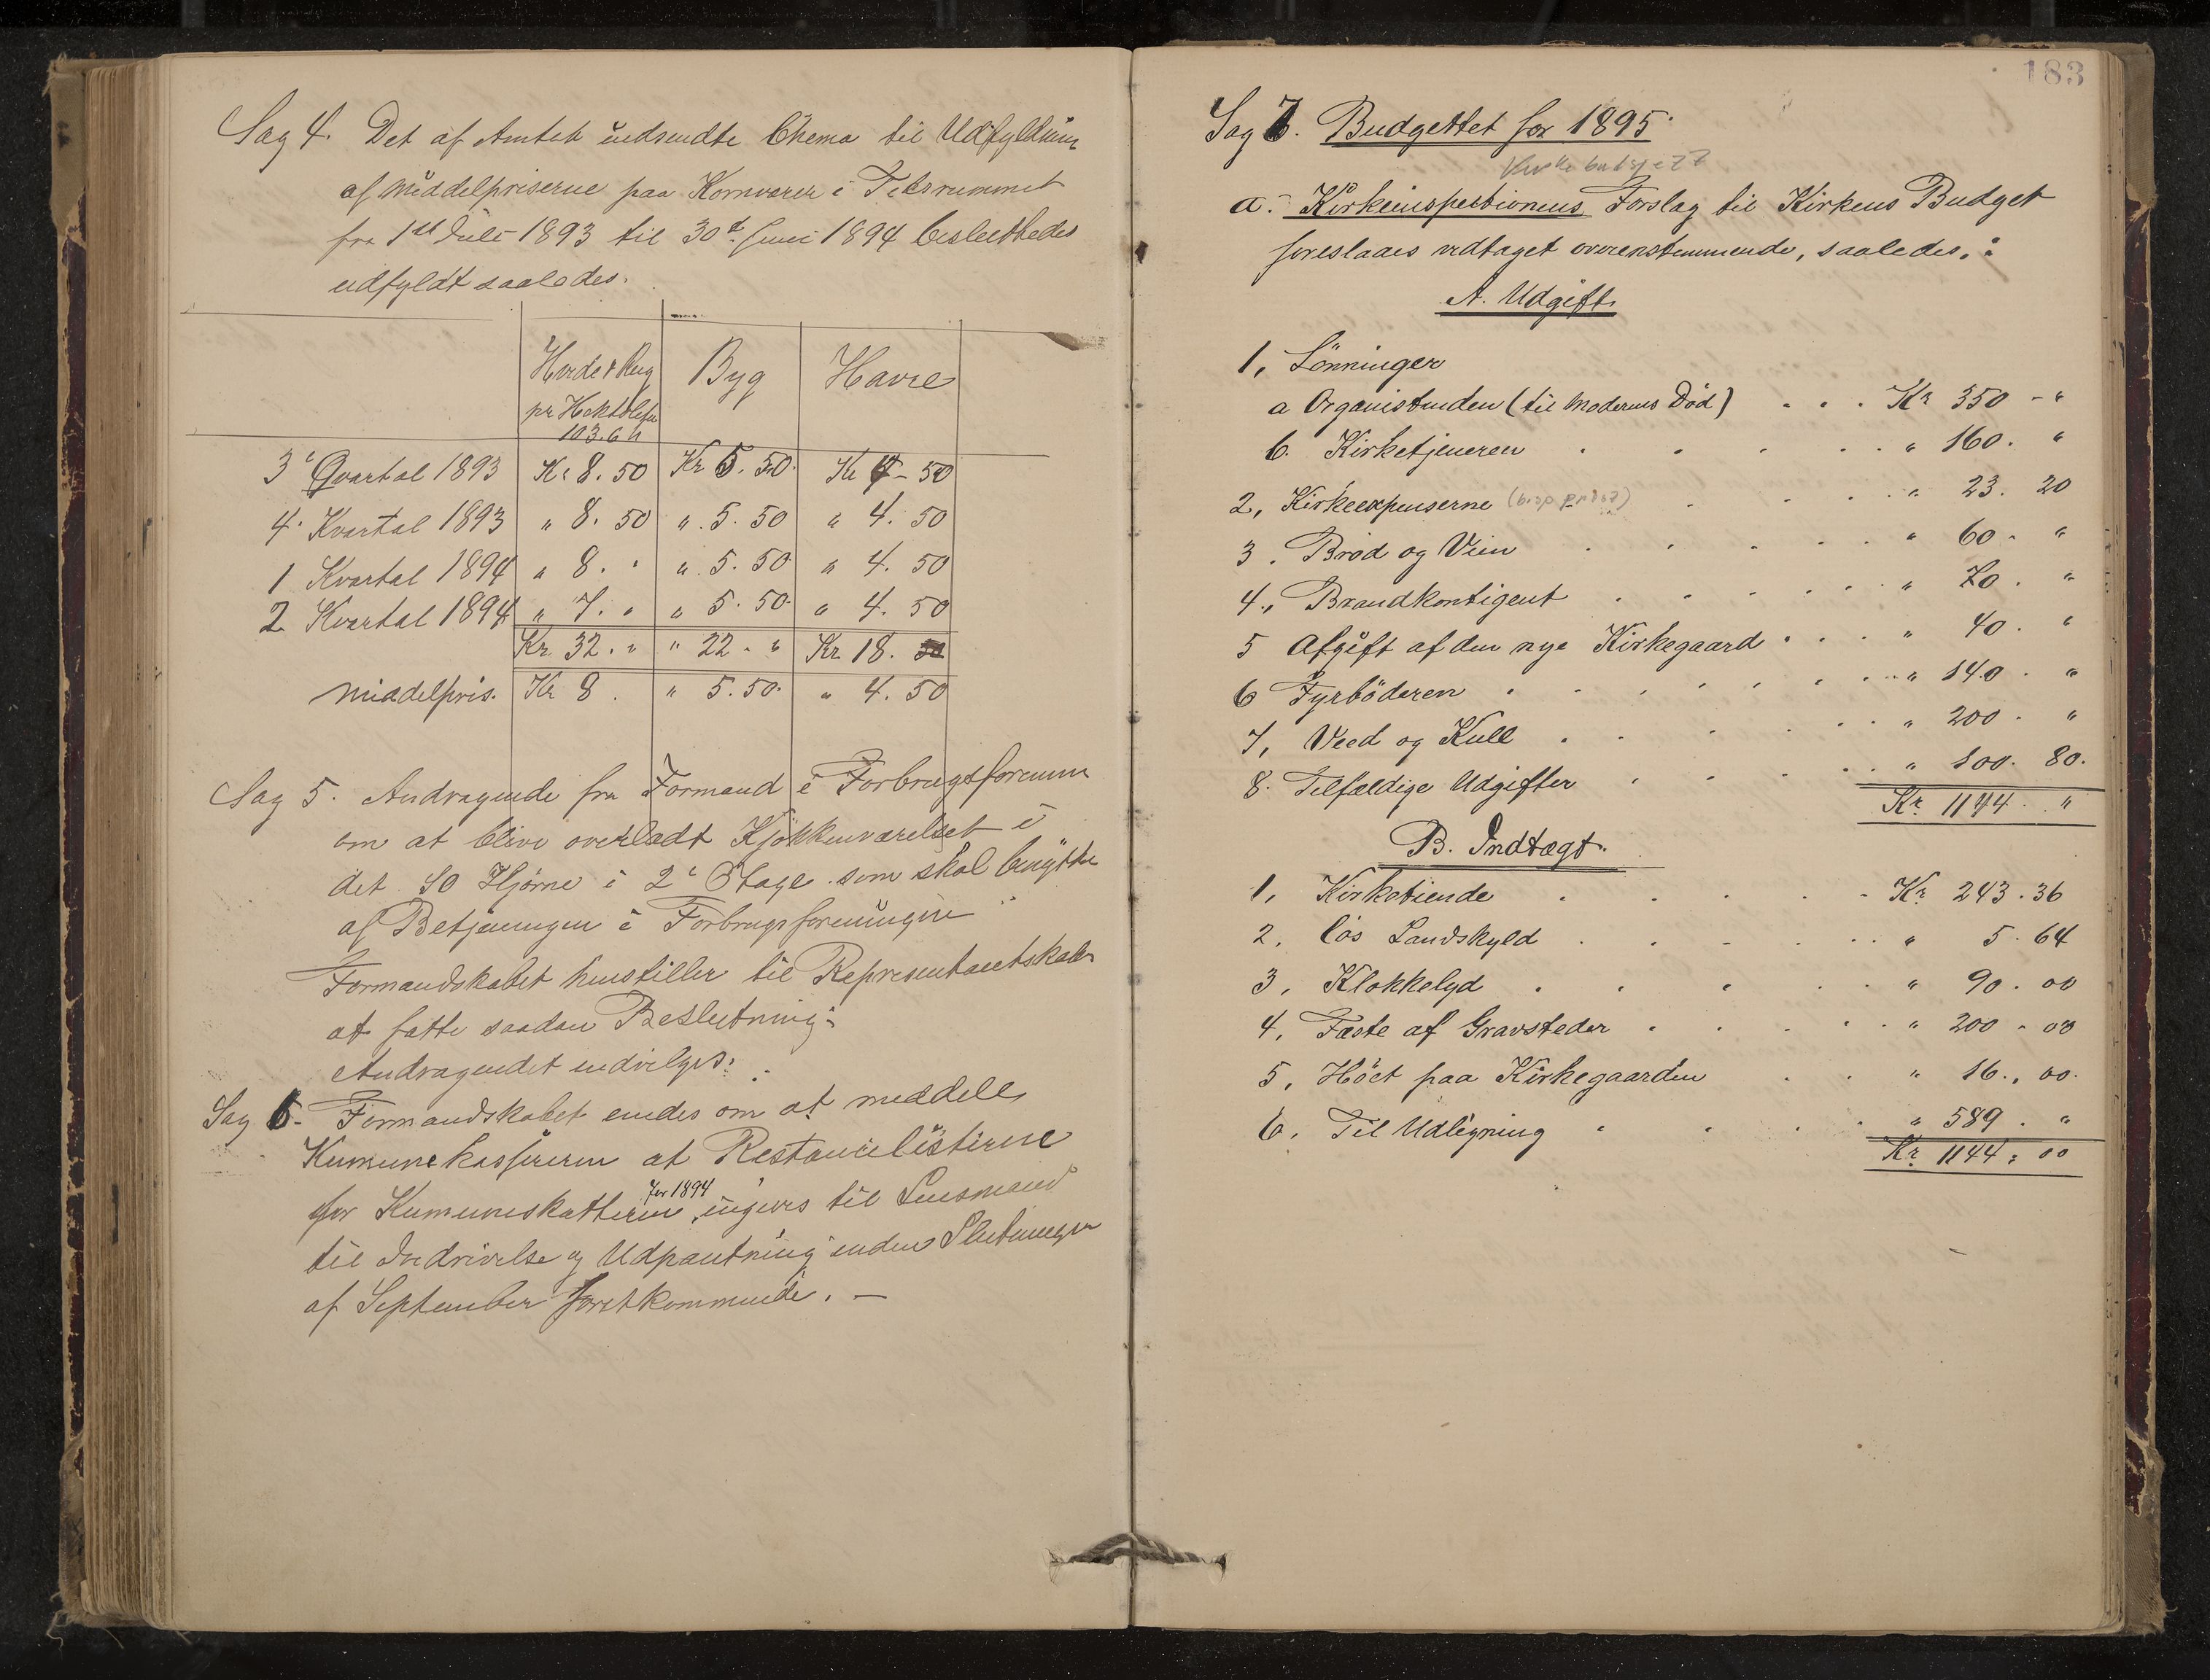 Sag 4. Det af Amtet indsendte Chema til Udfyldning
af Middelpriserne paa Kornvarer i Tidsrummet
fra 1st Juli 1893 til 30t Juni 1894 besluttedes
udfyldt saaledes.
Hvede & Rug Byg Havre
pr Hektoliter
103.6 h
3' Qvartal 1893 Kr 8.50 Kr 5.50. Kr 4-50
4. Kvartal 1893 " 8.50 " 5.50 " 4.50
1 Kvartal 1894 " 8. " " 5.50 " 4.50
2 Kvartal 1894 " 7. " " 5.50. " 4.50
Kr. 32. " " 22 - " Kr 18.
Middelpris. Kr 8. " 5.50. " 4.50
Sag 5. Andragende fra Formand i Forbrugsforenin
om at blive overladt Kjøkkenværelset i
det SO Hjørne i 2' Etage som skal benyttes
af Betjeningen i Forbrugsforeningen
Formandskabet henstiller til Representantskabet
at fatte saadan Beslutning:
Andragendet indvilges.
Sag 6. Formandskabet enedes om at meddele
Kumunekassereren at Restancelisterne
for 1894
for Kumuneskatterne, ingives til Lensmand
til Inddrivelse og Udpantning inden Slutningen
af September førstkommende. —
183
Sag 7. Budgettet for 1895.
a. Kirkeinspektionens Forslag til Kirkens Budget
foreslaaes vedtaget overenstemmende, saaledes:
A. Udgift.
1, Lönninger
a Organistinden (til Moderens Død) . . . Kr 350 - "
b. Kirketjeneren . . . . " 160. "
2, Kirkeexpenserne . . . " 23. 20
3. Brød og Viin . . . . " 60 - "
4., Brandkontigent . . . . " 70. "
5 Afgift af den nye Kirkegaard . . . " 40. "
6 Fyrböderen . . . . " 140. "
7, Veed og Kull . . . . " 200. "
8. Tilfældige Udgifter . . . . " 100. 80.
Kr. 1144. "
B. Indtægt.
1, Kirketiende . . . . Kr 243.36
2. løs Landskyld . . . . " 5.64
3, Klokkelyd . . . . " 90.00
4, Fæste af Gravsteder . . . . " 200 - 00
5, Höet paa Kirkegaarden . . " 16., 00.
6. Til Udligning . . . . " 589. "
Kr. 1144: 00